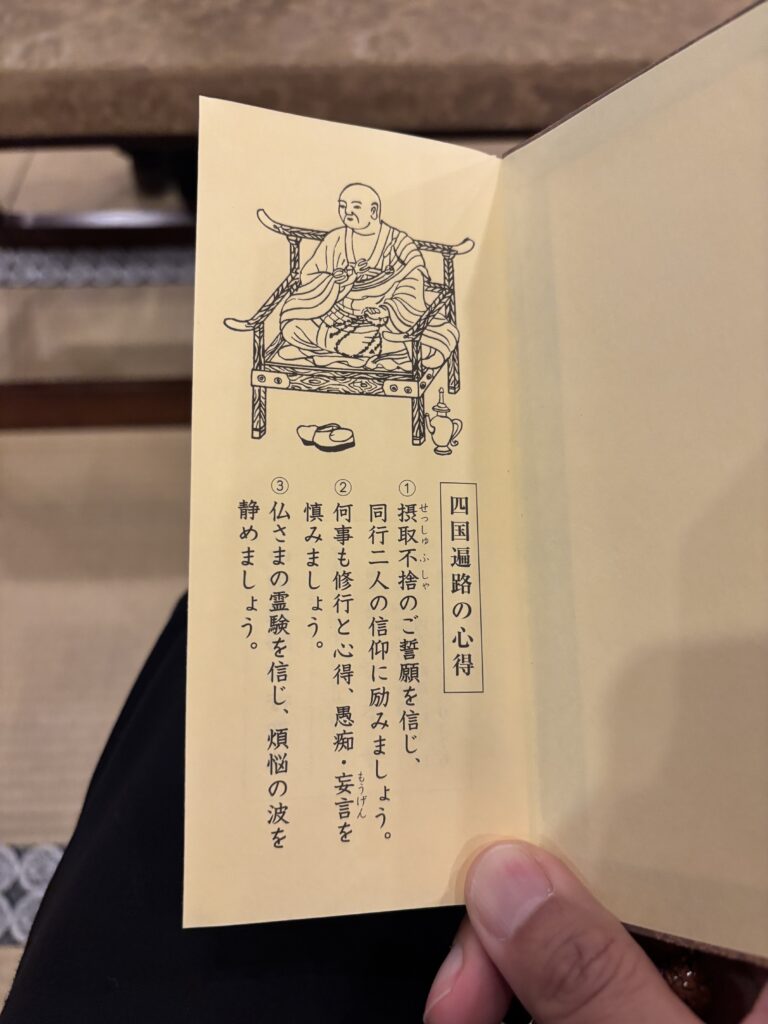 四国遍路の心得
① 摂取不捨のご誓願を信じ、
せっしゅふしゃ
同行二人の信仰に励みましょう。
② 何事も修行と心得、愚痴・妄言を
もうげん
慎みましょう。
③ 仏さまの霊験を信じ、煩悩の波を
静めましょう。